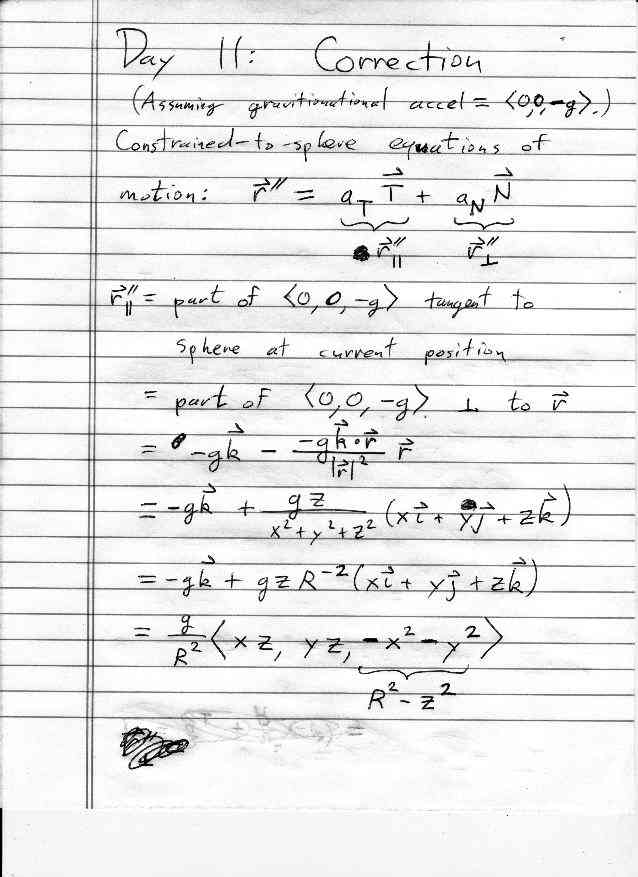 Day 11: Correction
(Assuming gravitionational accel = ⟨0,0,-g⟩.)
Constrained-to-sphere equations of
motion: r⃗″ = a_T T⃗ + a_N N⃗
r⃗″_∥ r⃗″_⊥
r⃗″_∥ = part of ⟨0,0,-g⟩ tangent to
sphere at current position
= part of ⟨0,0,-g⟩ ⊥ to r⃗
= -gk⃗ - (-gk⃗•r⃗)/|r⃗|² r⃗
= -gk⃗ + gz/(x²+y²+z²) (xi⃗ + yj⃗ + zk⃗)
= -gk⃗ + gzR⁻²(xi⃗ + yj⃗ + zk⃗)
= g/R² ⟨xz, yz, -x²-y²⟩
R²-z²